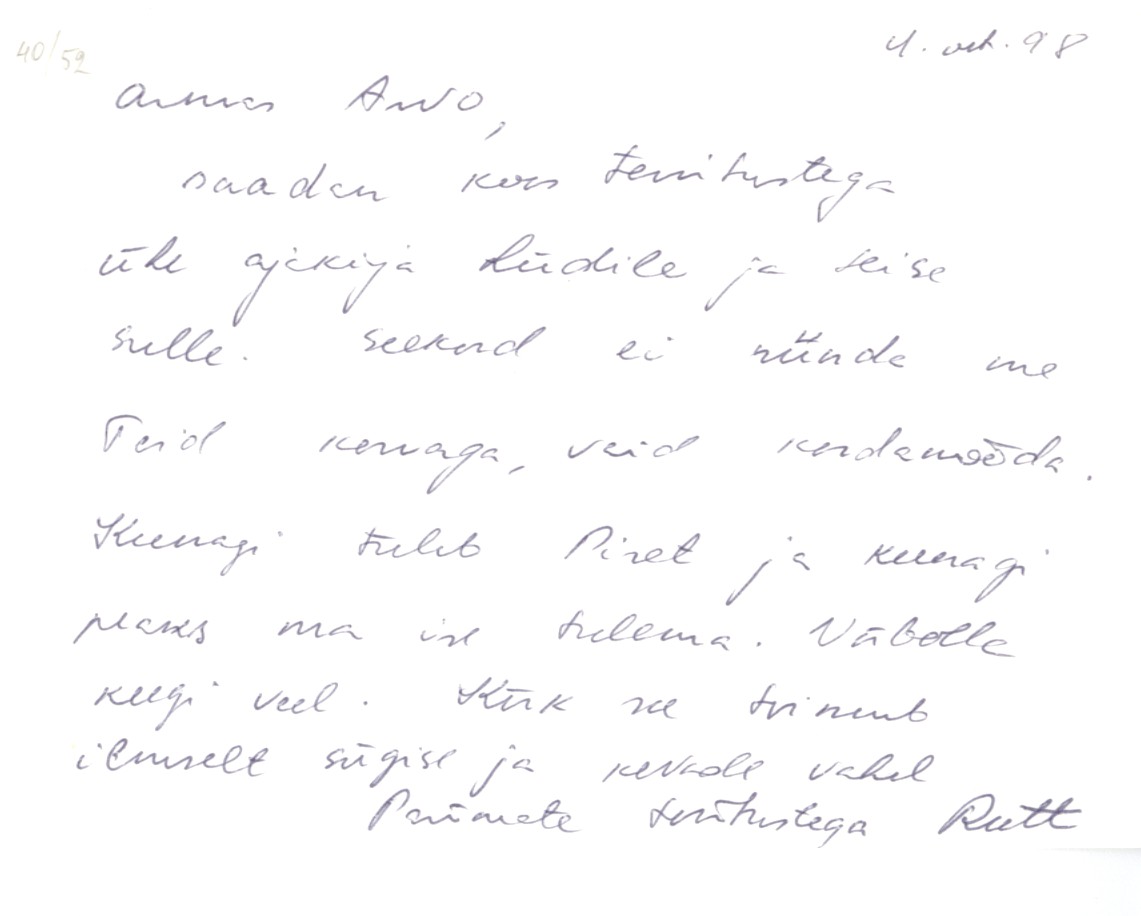 40/52
4. okt. 98
Armas Arvo,
saadan koos tervitustega
ühe ajakirja Lüdile ja teise
sulle. Seekord ei ründa me
Teid korraga, vaid kordamööda.
Kunagi tuleb Piret ja kunagi
peaks ma ise tulema. Võibolla
keegi veel. Kõik see toimub
ilmselt sügise ja kevade vahel
Parimate tervitustega Rutt